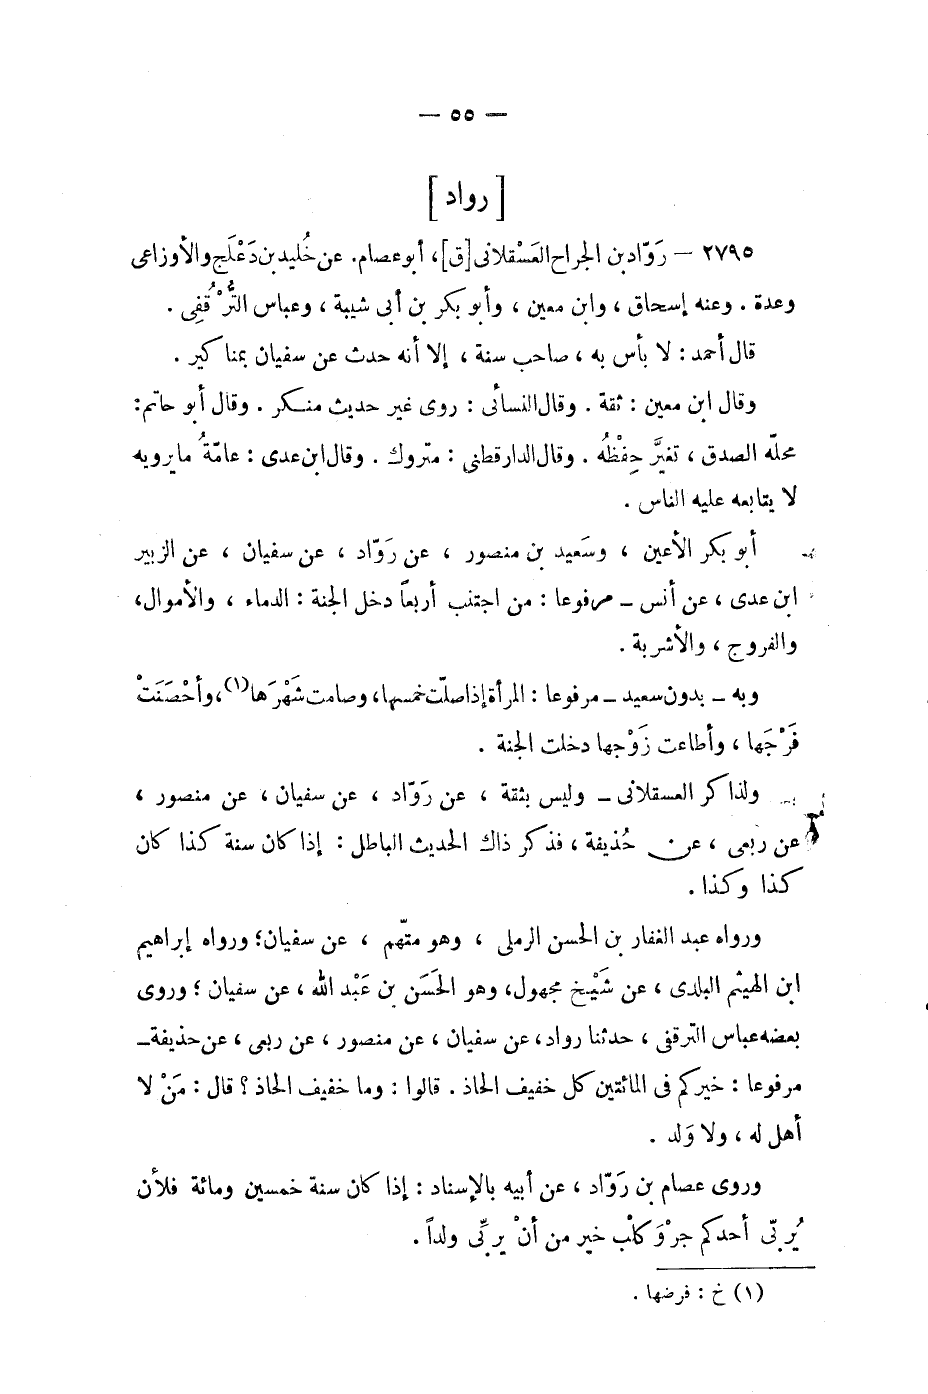 — ٥٥ —
[ رواد ]
٢٧٩٥ — رَوّاد بن الجراح العَسْقلانى [ق]، أبو عصام. عن خُليد بن دَعْلَج والأوزاعى
وعدة . وعنه إسحاق ، وابن معين ، وأبو بكر بن أبى شيبة ، وعباس التُّرْقُفِى .
قال أحمد : لا بأس به ، صاحب سنة ، إلا أنه حدث عن سفيان بمناكير .
وقال ابن معين : ثقة . وقال النسائى : روى غير حديث منكر . وقال أبو حاتم :
محلّه الصدق ، تغيَّر حِفْظُه . وقال الدارقطنى : متروك . وقال ابن عدى : عامّةُ ما يرويه
لا يتابعه عليه الناس .
أبو بكر الأعين ، وسَعيد بن منصور ، عن رَوّاد ، عن سفيان ، عن الزبير
ابن عدى ، عن أنس ــ مرفوعا : من اجتنب أربعاً دخل الجنة : الدماء ، والأموال ،
والفروج ، والأشربة .
وبه ــ بدون سعيد ــ مرفوعا : المرأة إذا صلّت خمسها، وصامت شَهْرَها(١)، وأحْصَنَتْ
فَرْجَها ، وأطاعت زَوْجها دخلت الجنة .
ولذاكر العسقلانى ــ وليس بثقة ، عن رَوّاد ، عن سفيان ، عن منصور ،
عن ربعى ، عن حُذيفة ، فذكر ذاك الحديث الباطل : إذا كان سنة كذا كان
كذا وكذا .
ورواه عبد الغفار بن الحسن الرملى ، وهو متّهم ، عن سفيان؛ ورواه إبراهيم
ابن الهيثم البلدى ، عن شَيْخ مجهول، وهو الحَسَن بن عَبْد الله ، عن سفيان ؛ وروى
بعضه عباس الترقفى ، حدثنا رواد، عن سفيان ، عن منصور ، عن ربعى ، عن حذيفة ــ
مرفوعا : خيركم فى المائتين كل خفيف الحاذ . قالوا : وما خفيف الحاذ ؟ قال : مَنْ لا
أهل له ، ولا وَلد .
وروى عصام بن رَوّاد ، عن أبيه بالإسناد : إذا كان سنة خمسين ومائة فلأن
يُربّى أحدكم جرْوَ كلْب خير من أنْ يربِّى ولداً .
(١) خ : فرضها .